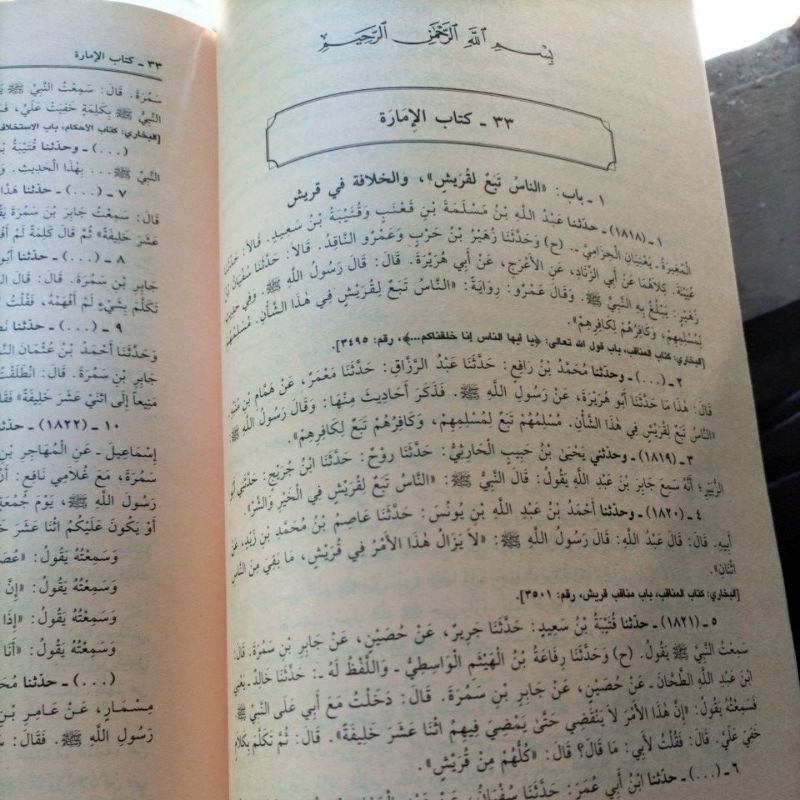 بِسْمِ اللَّهِ الرَّحْمَنِ الرَّحِيمِ
٣٣ - كتاب الإِمارَة
١ - باب: «الناسُ تَبَعٌ لقُرَيشٍ»، والخلافة في قريش
١ - (١٨١٨) - حدثنا عَبْدُ اللَّهِ بْنُ مَسْلَمَةَ بْنِ قَعْنَبٍ وَقُتَيْبَةُ بْنُ سَعِيدٍ. قَالاَ: حَدَّثَنَا
الْمُغِيرَةُ - يَعْنِيَانِ الْحِزَامِيَّ -. (ح) وَحَدَّثَنَا زُهَيْرُ بْنُ حَرْبٍ وَعَمْرٌو النَّاقِدُ. قَالاَ: حَدَّثَنَا سُفْيَانُ بْنُ
عُيَيْنَةَ. كِلاَهُمَا عَنْ أَبِي الزِّنَادِ، عَنِ الأَعْرَجِ، عَنْ أَبِي هُرَيْرَةَ. قَالَ: قَالَ رَسُولُ اللَّهِ ﷺ، وَفِي حديث
زُهَيْرٍ: يَبْلُغُ بِهِ النَّبِيَّ ﷺ. وَقَالَ عَمْرٌو: رِوَايَةً: «النَّاسُ تَبَعٌ لِقُرَيْشٍ فِي هٰذَا الشَّأْنِ. مُسْلِمُهُمْ
لِمُسْلِمِهِمْ، وَكَافِرُهُمْ لِكَافِرِهِمْ».
[البخاري: كتاب المناقب، باب قول الله تعالى: ﴿يا أيها الناس إنا خلقناكم...﴾، رقم: ٣٤٩٥].
٢ - (...) - وحدثنا مُحَمَّدُ بْنُ رَافِعٍ: حَدَّثَنَا عَبْدُ الرَّزَّاقِ: حَدَّثَنَا مَعْمَرٌ، عَنْ هَمَّامِ بْنِ مُنَبِّهٍ
قَالَ: هٰذَا مَا حَدَّثَنَا أَبُو هُرَيْرَةَ، عَنْ رَسُولِ اللَّهِ ﷺ. فَذَكَرَ أَحَادِيثَ مِنْهَا: وَقَالَ رَسُولُ اللَّهِ ﷺ:
«النَّاسُ تَبَعٌ لِقُرَيْشٍ فِي هٰذَا الشَّأْنِ. مُسْلِمُهُمْ تَبَعٌ لِمُسْلِمِهِمْ، وَكَافِرُهُمْ تَبَعٌ لِكَافِرِهِمْ».
٣ - (١٨١٩) - وحدثني يَحْيَىٰ بْنُ حَبِيبٍ الْحَارِثِيُّ: حَدَّثَنَا رَوْحٌ: حَدَّثَنَا ابْنُ جُرَيْجٍ: حَدَّثَنِي أَبُو
الزُّبَيْرِ؛ أَنَّهُ سَمِعَ جَابِرَ بْنَ عَبْدِ اللَّهِ يَقُولُ: قَالَ النَّبِيُّ ﷺ: «النَّاسُ تَبَعٌ لِقُرَيْشٍ فِي الْخَيْرِ وَالشَّرِّ».
٤ - (١٨٢٠) - وحدثنا أَحْمَدُ بْنُ عَبْدِ اللَّهِ بْنِ يُونُسَ: حَدَّثَنَا عَاصِمُ بْنُ مُحَمَّدِ بْنِ زَيْدٍ، عَنْ
أَبِيهِ. قَالَ: قَالَ عَبْدُ اللَّهِ: قَالَ رَسُولُ اللَّهِ ﷺ: «لاَ يَزَالُ هٰذَا الأَمْرُ فِي قُرَيْشٍ، مَا بَقِيَ مِنَ النَّاسِ
اثْنَانِ».
[البخاري: كتاب المناقب، باب مناقب قريش، رقم: ٣٥٠١].
٥ - (١٨٢١) - حدثنا قُتَيْبَةُ بْنُ سَعِيدٍ: حَدَّثَنَا جَرِيرٌ، عَنْ حُصَيْنٍ، عَنْ جَابِرِ بْنِ سَمُرَةَ. قَالَ:
سَمِعْتُ النَّبِيَّ ﷺ يَقُولُ. (ح) وَحَدَّثَنَا رِفَاعَةُ بْنُ الْهَيْثَمِ الْوَاسِطِيُّ - وَاللَّفْظُ لَهُ -: حَدَّثَنَا خَالِدٌ - يَعْنِي
ابْنَ عَبْدِ اللَّهِ الطَّحَّانَ - عَنْ حُصَيْنٍ، عَنْ جَابِرِ بْنِ سَمُرَةَ. قَالَ: دَخَلْتُ مَعَ أَبِي عَلَى النَّبِيِّ ﷺ.
فَسَمِعْتُهُ يَقُولُ: «إِنَّ هٰذَا الأَمْرَ لاَ يَنْقَضِي حَتَّىٰ يَمْضِيَ فِيهِمُ اثْنَا عَشَرَ خَلِيفَةً». قَالَ: ثُمَّ تَكَلَّمَ بِكَلاَمٍ
خَفِيَ عَلَيَّ. قَالَ: فَقُلْتُ لأَبِي: مَا قَالَ؟ قَالَ: «كُلُّهُمْ مِنْ قُرَيْشٍ».
٦ - (...) - حدثنا ابْنُ أَبِي عُمَرَ: حَدَّثَنَا سُفْيَانُ،
٣٣ - كتاب الإمارة
سَمُرَةَ. قَالَ: سَمِعْتُ النَّبِيَّ ﷺ
النَّبِيُّ ﷺ بِكَلِمَةٍ خَفِيَتْ عَلَيَّ،
[البخاري: كتاب الأحكام، باب الاستخلاف
(...) - وحدثنا قُتَيْبَةُ
النَّبِيِّ ﷺ... بِهٰذَا الْحَدِيثِ.
٧ - (...) - حدثنا
قَالَ: سَمِعْتُ جَابِرَ بْنَ سَمُرَةَ
عَشَرَ خَلِيفَةً» ثُمَّ قَالَ كَلِمَةً لَمْ
٨ - (...) - حدثنا أَبُو
جَابِرِ بْنِ سَمُرَةَ. قَالَ: قَالَ
تَكَلَّمَ بِشَيْءٍ لَمْ أَفْهَمْهُ. فَقُلْتُ
٩ - (...) - حدثنا
وَحَدَّثَنَا أَحْمَدُ بْنُ عُثْمَانَ
جَابِرِ بْنِ سَمُرَةَ. قَالَ: انْطَلَقْتُ
مَنِيعاً إِلَى اثْنَيْ عَشَرَ خَلِيفَةً»
١٠ - (١٨٢٢) - حدثنا
إِسْمَاعِيلَ - عَنِ الْمُهَاجِرِ بْنِ
سَمُرَةَ، مَعَ غُلاَمِي نَافِعٍ: أَنْ
رَسُولَ اللَّهِ ﷺ، يَوْمَ جُمُعَةٍ
أَوْ يَكُونَ عَلَيْكُمُ اثْنَا عَشَرَ
وَسَمِعْتُهُ يَقُولُ:
وَسَمِعْتُهُ يَقُولُ: «إِنَّ
وَسَمِعْتُهُ يَقُولُ: «إِذَا
وَسَمِعْتُهُ يَقُولُ: «أَنَا
(...) - حدثنا
مِسْمَارٍ، عَنْ عَامِرِ بْنِ
رَسُولِ اللَّهِ ﷺ. فَقَالَ: